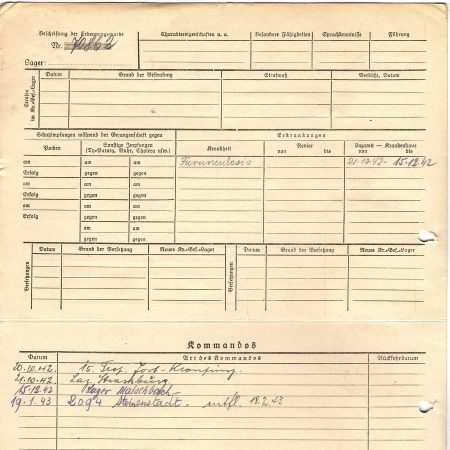 Beschriftung der Erkennungsmarke
Nr. 70862
Lager:
Charaktereigenschaften u. a.
Besondere Fähigkeiten
Sprachkenntnisse
Führung
Strafen im Kr.-Gef.-Lager
Datum
Grund der Bestrafung
Strafmaß
Verbüßt, Datum
Schutzimpfungen während der Gefangenschaft gegen
Erkrankungen
Pocken
Sonstige Impfungen
(Ty.-Paratyp. Ruhr, Cholera usw.)
Krankheit
Revier
von bis
Lazarett – Krankenhaus
von bis
am am am
Erfolg gegen gegen
am am am
Erfolg gegen gegen
am am am
Erfolg gegen gegen
am am
gegen gegen
Furunculosis
21.10.42- 15.12.42
Versetzungen
Datum
Grund der Versetzung
Neues Kr.-Gef.-Lager
Versetzungen
Datum
Grund der Versetzung
Neues Kr.-Gef.-Lager
Kommandos
Datum
Art des Kommandos
Rückkehrdatum
20.10.42. 15.
21.10.42. Laz. Strassburg
15.12.42 Lager
19.1.43 2094 Steinenstadt. 18.2.43